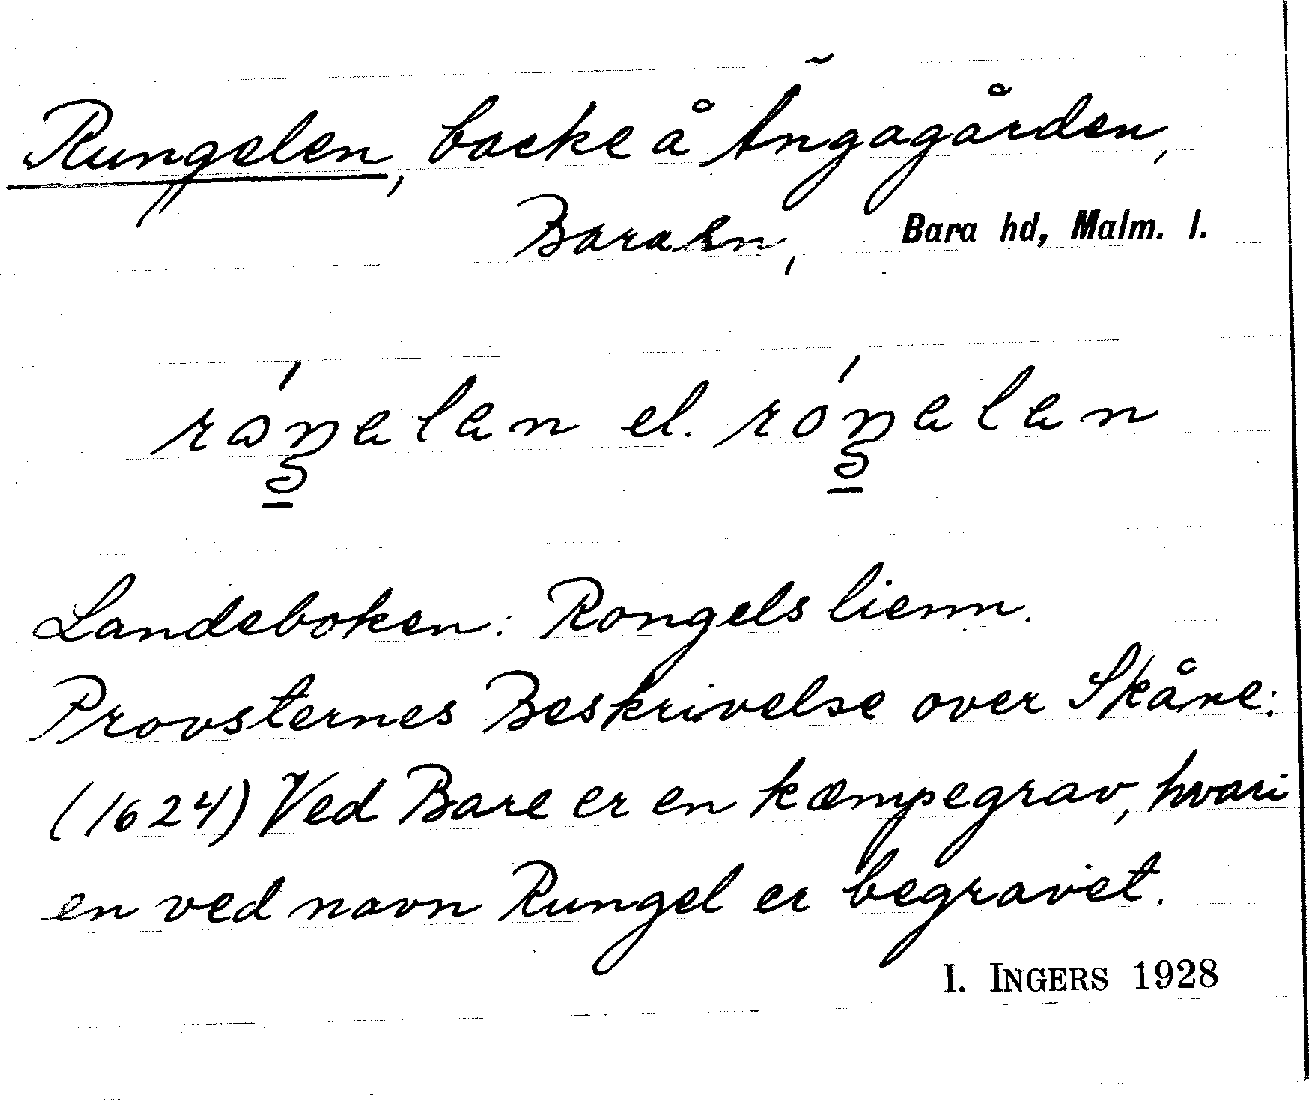 Rungelen, backe å Ängagården,
Bara sn, Bara hd, Malm. l.
el.
Landeboken: Rongels lienn.
Provsternes Beskrivelse over Skåne:
(1624) Ved Bare er en kæmpegrav, hvari
en ved navn Rungel er begravet.
I. INGERS 1928